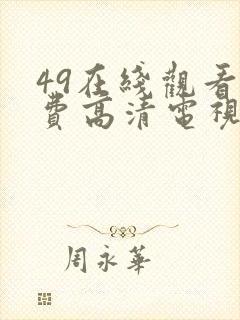 49在綫觀看
費高清電視
周永華